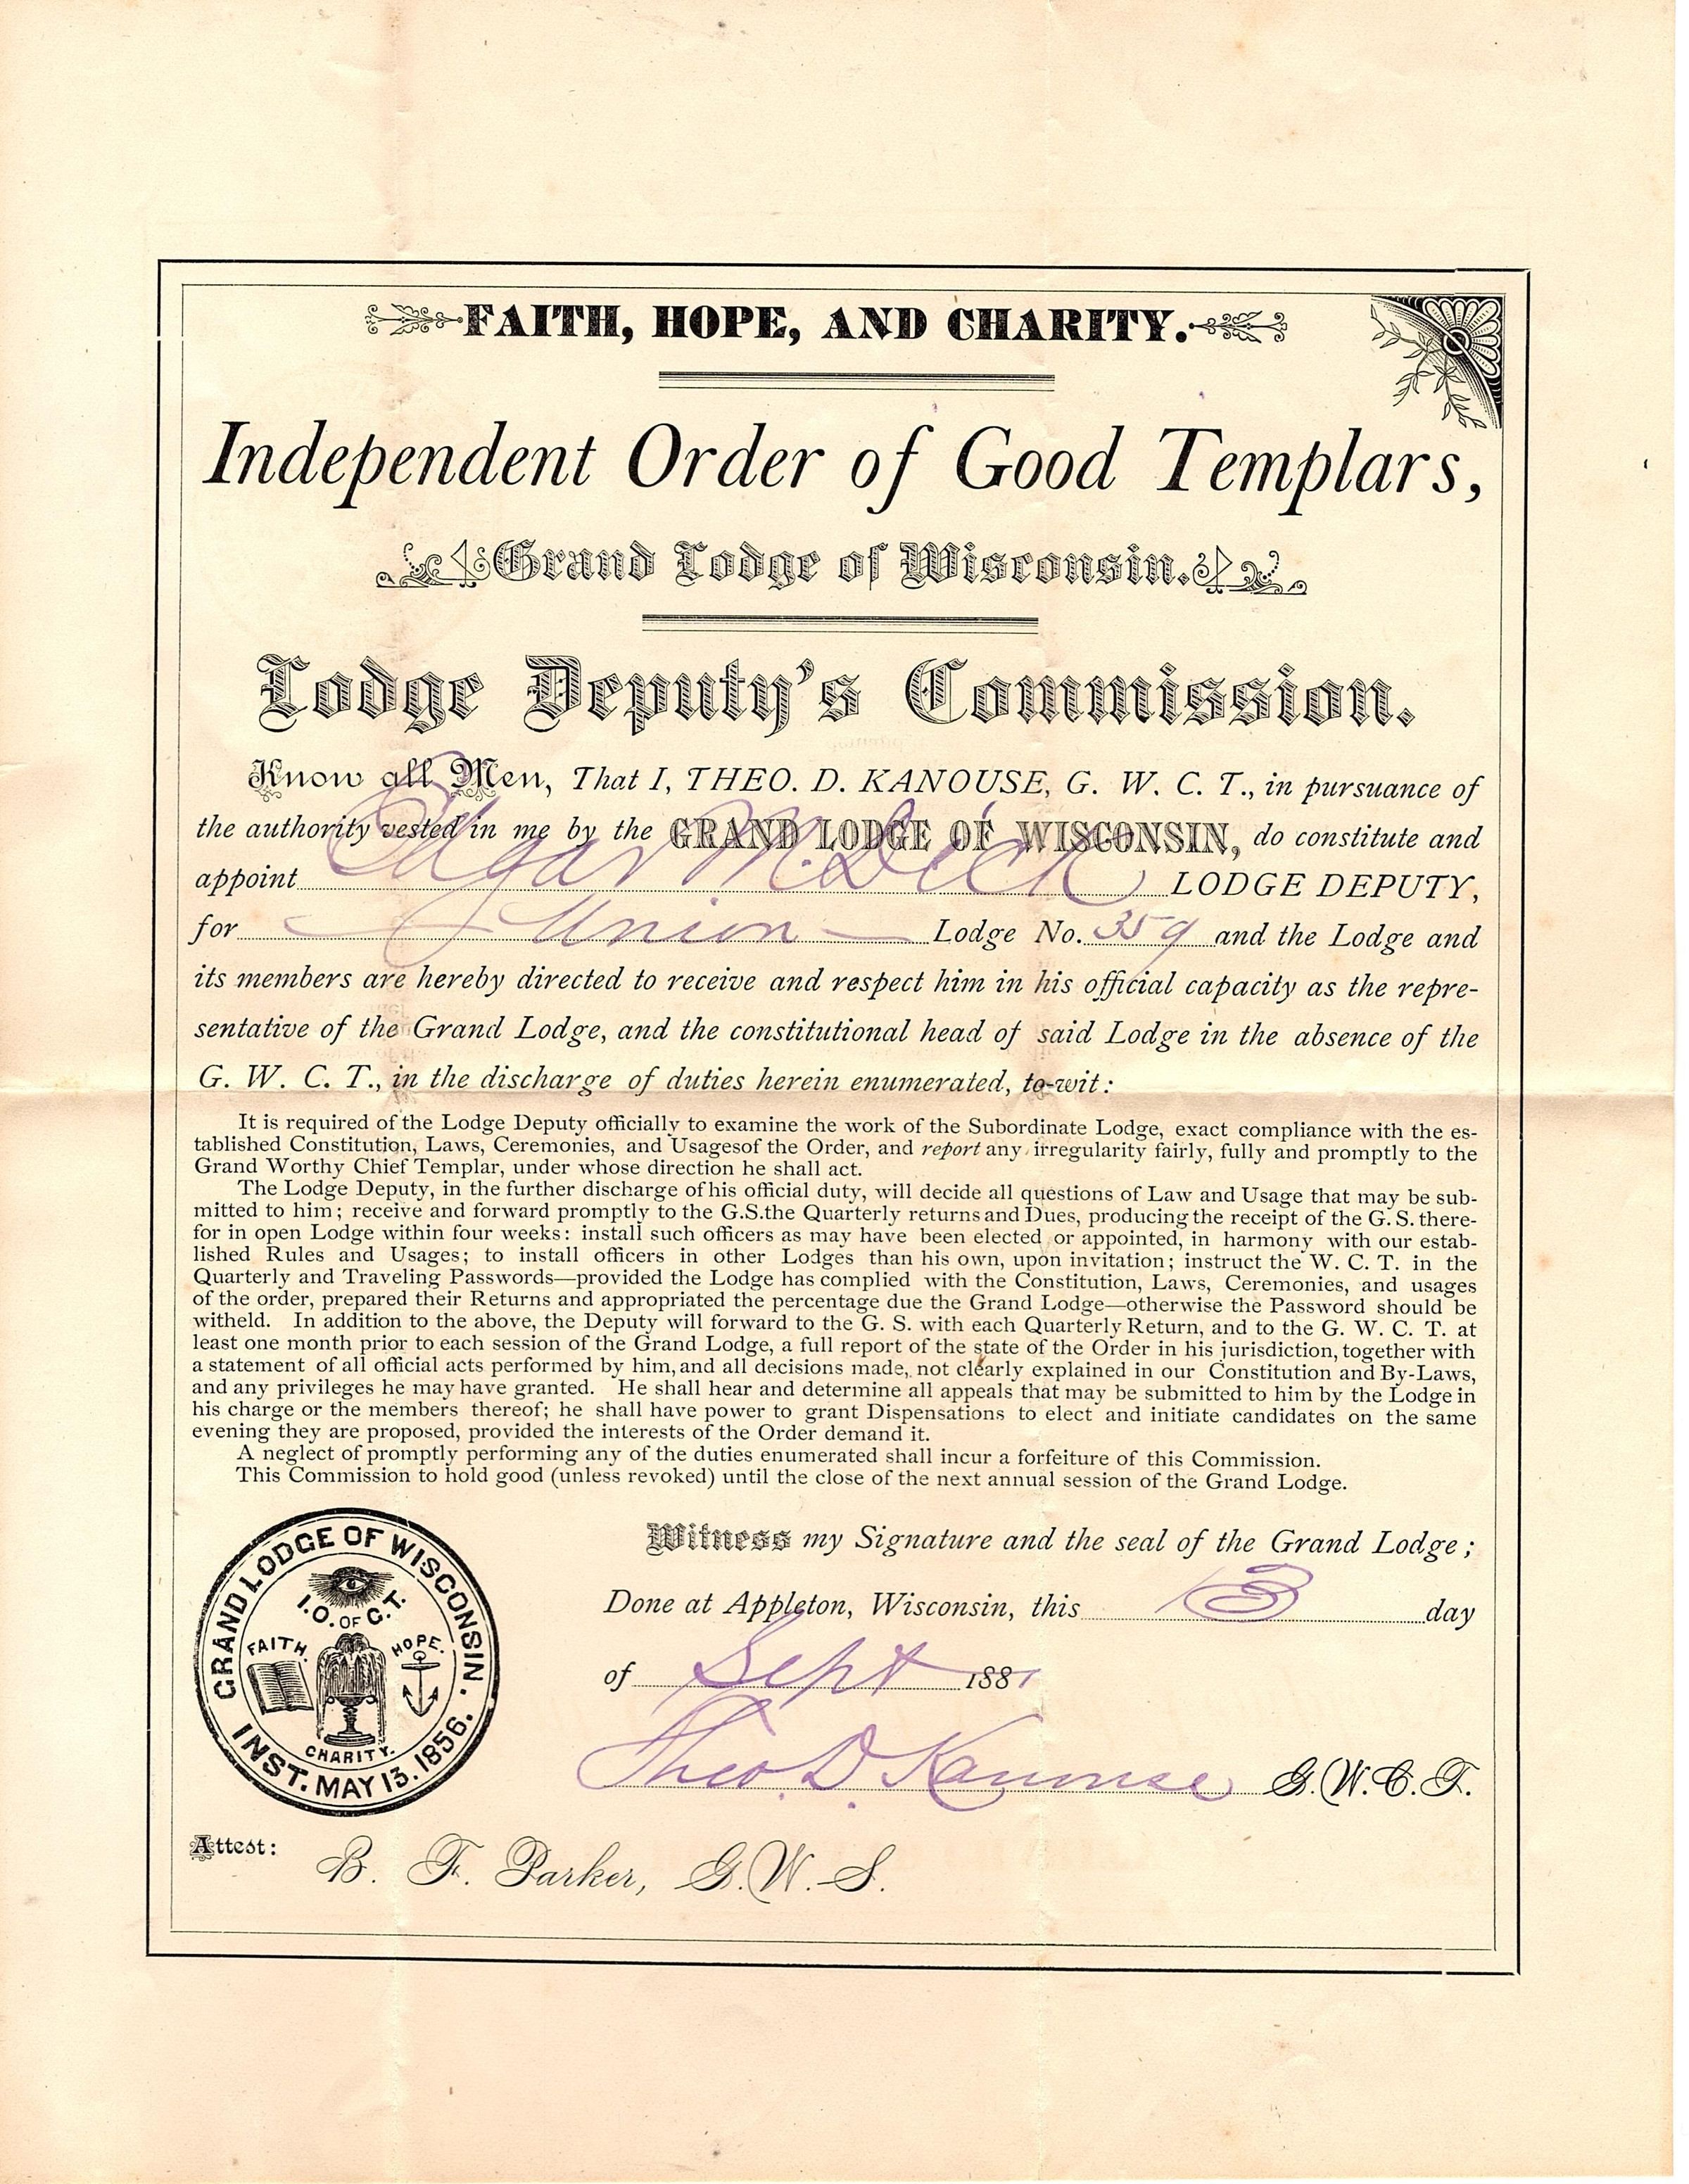 FAITH, HOPE, AND CHARITY.
Independent Order of Good Templars,
Grand Lodge of Wisconsin.
Lodge Deputy's Commission.
Know all Men, That I, THEO. D. KANOUSE, G. W. C. T., in pursuance of
the authority vested in me by the GRAND LODGE OF WISCONSIN, do constitute and
appoint Edgar M. Dick LODGE DEPUTY,
for Union Lodge No. 359 and the Lodge and
its members are hereby directed to receive and respect him in his official capacity as the repre-
sentative of the Grand Lodge, and the constitutional head of said Lodge in the absence of the
G. W. C. T., in the discharge of duties herein enumerated, to-wit:
It is required of the Lodge Deputy officially to examine the work of the Subordinate Lodge, exact compliance with the es-
tablished Constitution, Laws, Ceremonies, and Usagesof the Order, and report any irregularity fairly, fully and promptly to the
Grand Worthy Chief Templar, under whose direction he shall act.
The Lodge Deputy, in the further discharge of his official duty, will decide all questions of Law and Usage that may be sub-
mitted to him; receive and forward promptly to the G.S.the Quarterly returns and Dues, producing the receipt of the G. S. there-
for in open Lodge within four weeks: install such officers as may have been elected or appointed, in harmony with our estab-
lished Rules and Usages; to install officers in other Lodges than his own, upon invitation; instruct the W. C. T. in the
Quarterly and Traveling Passwords—provided the Lodge has complied with the Constitution, Laws, Ceremonies, and usages
of the order, prepared their Returns and appropriated the percentage due the Grand Lodge—otherwise the Password should be
witheld. In addition to the above, the Deputy will forward to the G. S. with each Quarterly Return, and to the G. W. C. T. at
least one month prior to each session of the Grand Lodge, a full report of the state of the Order in his jurisdiction, together with
a statement of all official acts performed by him, and all decisions made, not clearly explained in our Constitution and By-Laws,
and any privileges he may have granted. He shall hear and determine all appeals that may be submitted to him by the Lodge in
his charge or the members thereof; he shall have power to grant Dispensations to elect and initiate candidates on the same
evening they are proposed, provided the interests of the Order demand it.
A neglect of promptly performing any of the duties enumerated shall incur a forfeiture of this Commission.
This Commission to hold good (unless revoked) until the close of the next annual session of the Grand Lodge.
Witness my Signature and the seal of the Grand Lodge;
Done at Appleton, Wisconsin, this 13 day
of Sept 1881
Theo. D. Kanouse G. W. C. T.
GRAND LODGE OF WISCONSIN.
I. O. OF G. T.
FAITH. HOPE.
CHARITY.
INST. MAY 13. 1856.
Attest: B. F. Parker, G. W. S.